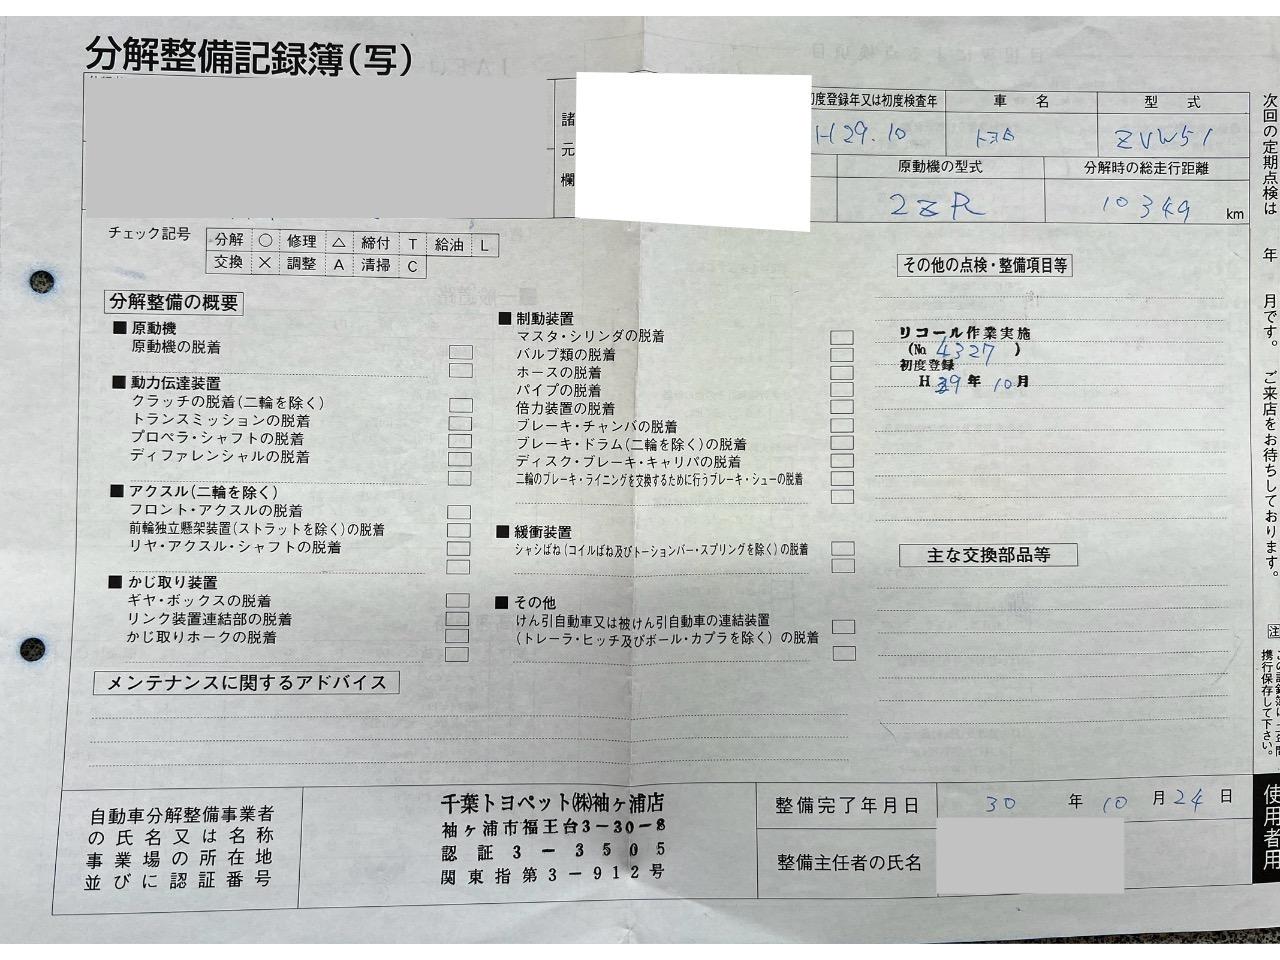 分解整備記録簿(写)
諸元欄
初度登録年又は初度検査年
車名
型式
H29.10
トヨタ
ZVW51
原動機の型式
分解時の総走行距離
2ZR
10349 km
チェック記号
分解 ○ 修理 △ 締付 T 給油 L
交換 × 調整 A 清掃 C
分解整備の概要
■ 原動機
原動機の脱着
■ 動力伝達装置
クラッチの脱着(二輪を除く)
トランスミッションの脱着
プロペラ・シャフトの脱着
ディファレンシャルの脱着
■ アクスル(二輪を除く)
フロント・アクスルの脱着
前輪独立懸架装置(ストラットを除く)の脱着
リヤ・アクスル・シャフトの脱着
■ かじ取り装置
ギヤ・ボックスの脱着
リンク装置連結部の脱着
かじ取りホークの脱着
■ 制動装置
マスタ・シリンダの脱着
バルブ類の脱着
ホースの脱着
パイプの脱着
倍力装置の脱着
ブレーキ・チャンバの脱着
ブレーキ・ドラム(二輪を除く)の脱着
ディスク・ブレーキ・キャリパの脱着
二輪のブレーキ・ライニングを交換するために行うブレーキ・シューの脱着
■ 緩衝装置
シャシばね(コイルばね及びトーションバー・スプリングを除く)の脱着
■ その他
けん引自動車又は被けん引自動車の連結装置
(トレーラ・ヒッチ及びボール・カプラを除く)の脱着
その他の点検・整備項目等
リコール作業実施
(№ 4327 )
初度登録
H 29年 10月
主な交換部品等
メンテナンスに関するアドバイス
自動車分解整備事業者
の氏名又は名称
事業場の所在地
並びに認証番号
千葉トヨペット㈱袖ヶ浦店
袖ヶ浦市福王台3-30-8
認証3-3505
関東指第3-912号
整備完了年月日
30 年 10 月 24 日
整備主任者の氏名
次回の定期点検は 年 月です。ご来店をお待ちしております。
携行保存して下さい。
使用者用